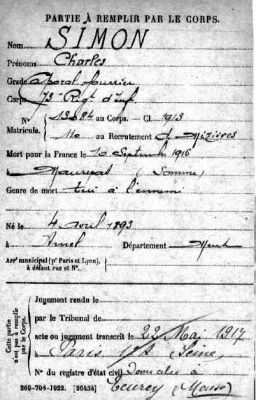 PARTIE À REMPLIR PAR LE CORPS.
Nom SIMON
Prénoms Charles
Grade Caporal fourrier
Corps 73e Régt d'Inf
N° 13684 au Corps. — Cl. 1913
Matricule. 110 au Recrutement de Mézières
Mort pour la France le 10 Septembre 1916
à Maurepas (Somme)
Genre de mort tué à l'ennemi
Né le 4 avril 1893
à Amel Département Meuse
Arrᵗ municipal (pʳ Paris et Lyon), à défaut rue et N°.
Cette partie n'est pas à remplir par le Corps.
Jugement rendu le
par le Tribunal de
acte ou jugement transcrit le 22 Mai 1917
à Paris Seine
N° du registre d'état civil domicilié à
269-708-1922. [26434] (Meuse)